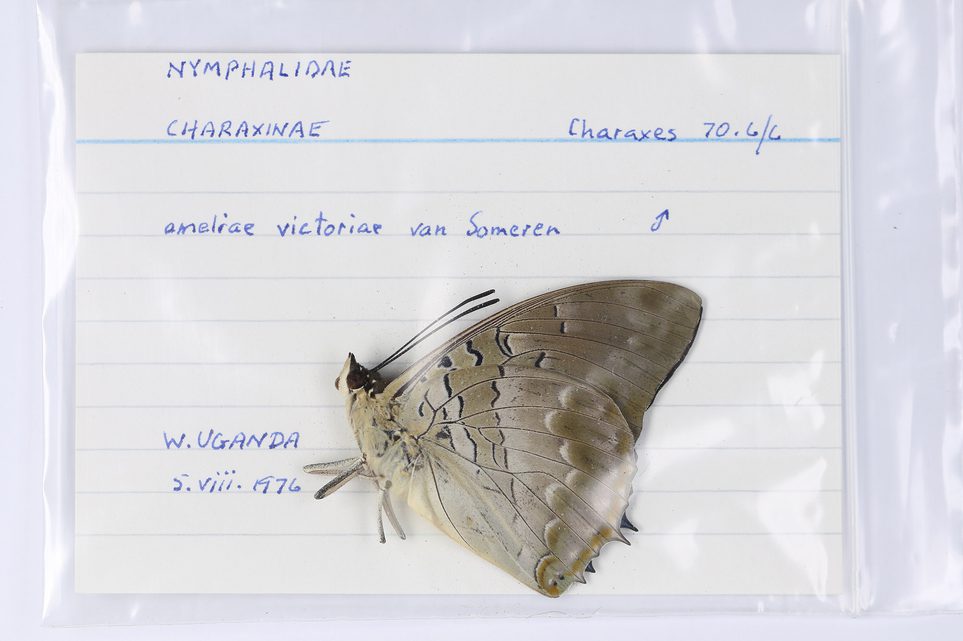 NYMPHALIDAE
CHARAXINAE Charaxes 70.6/6
ameliae victoriae van Someren ♂
W. UGANDA
5.viii.1976